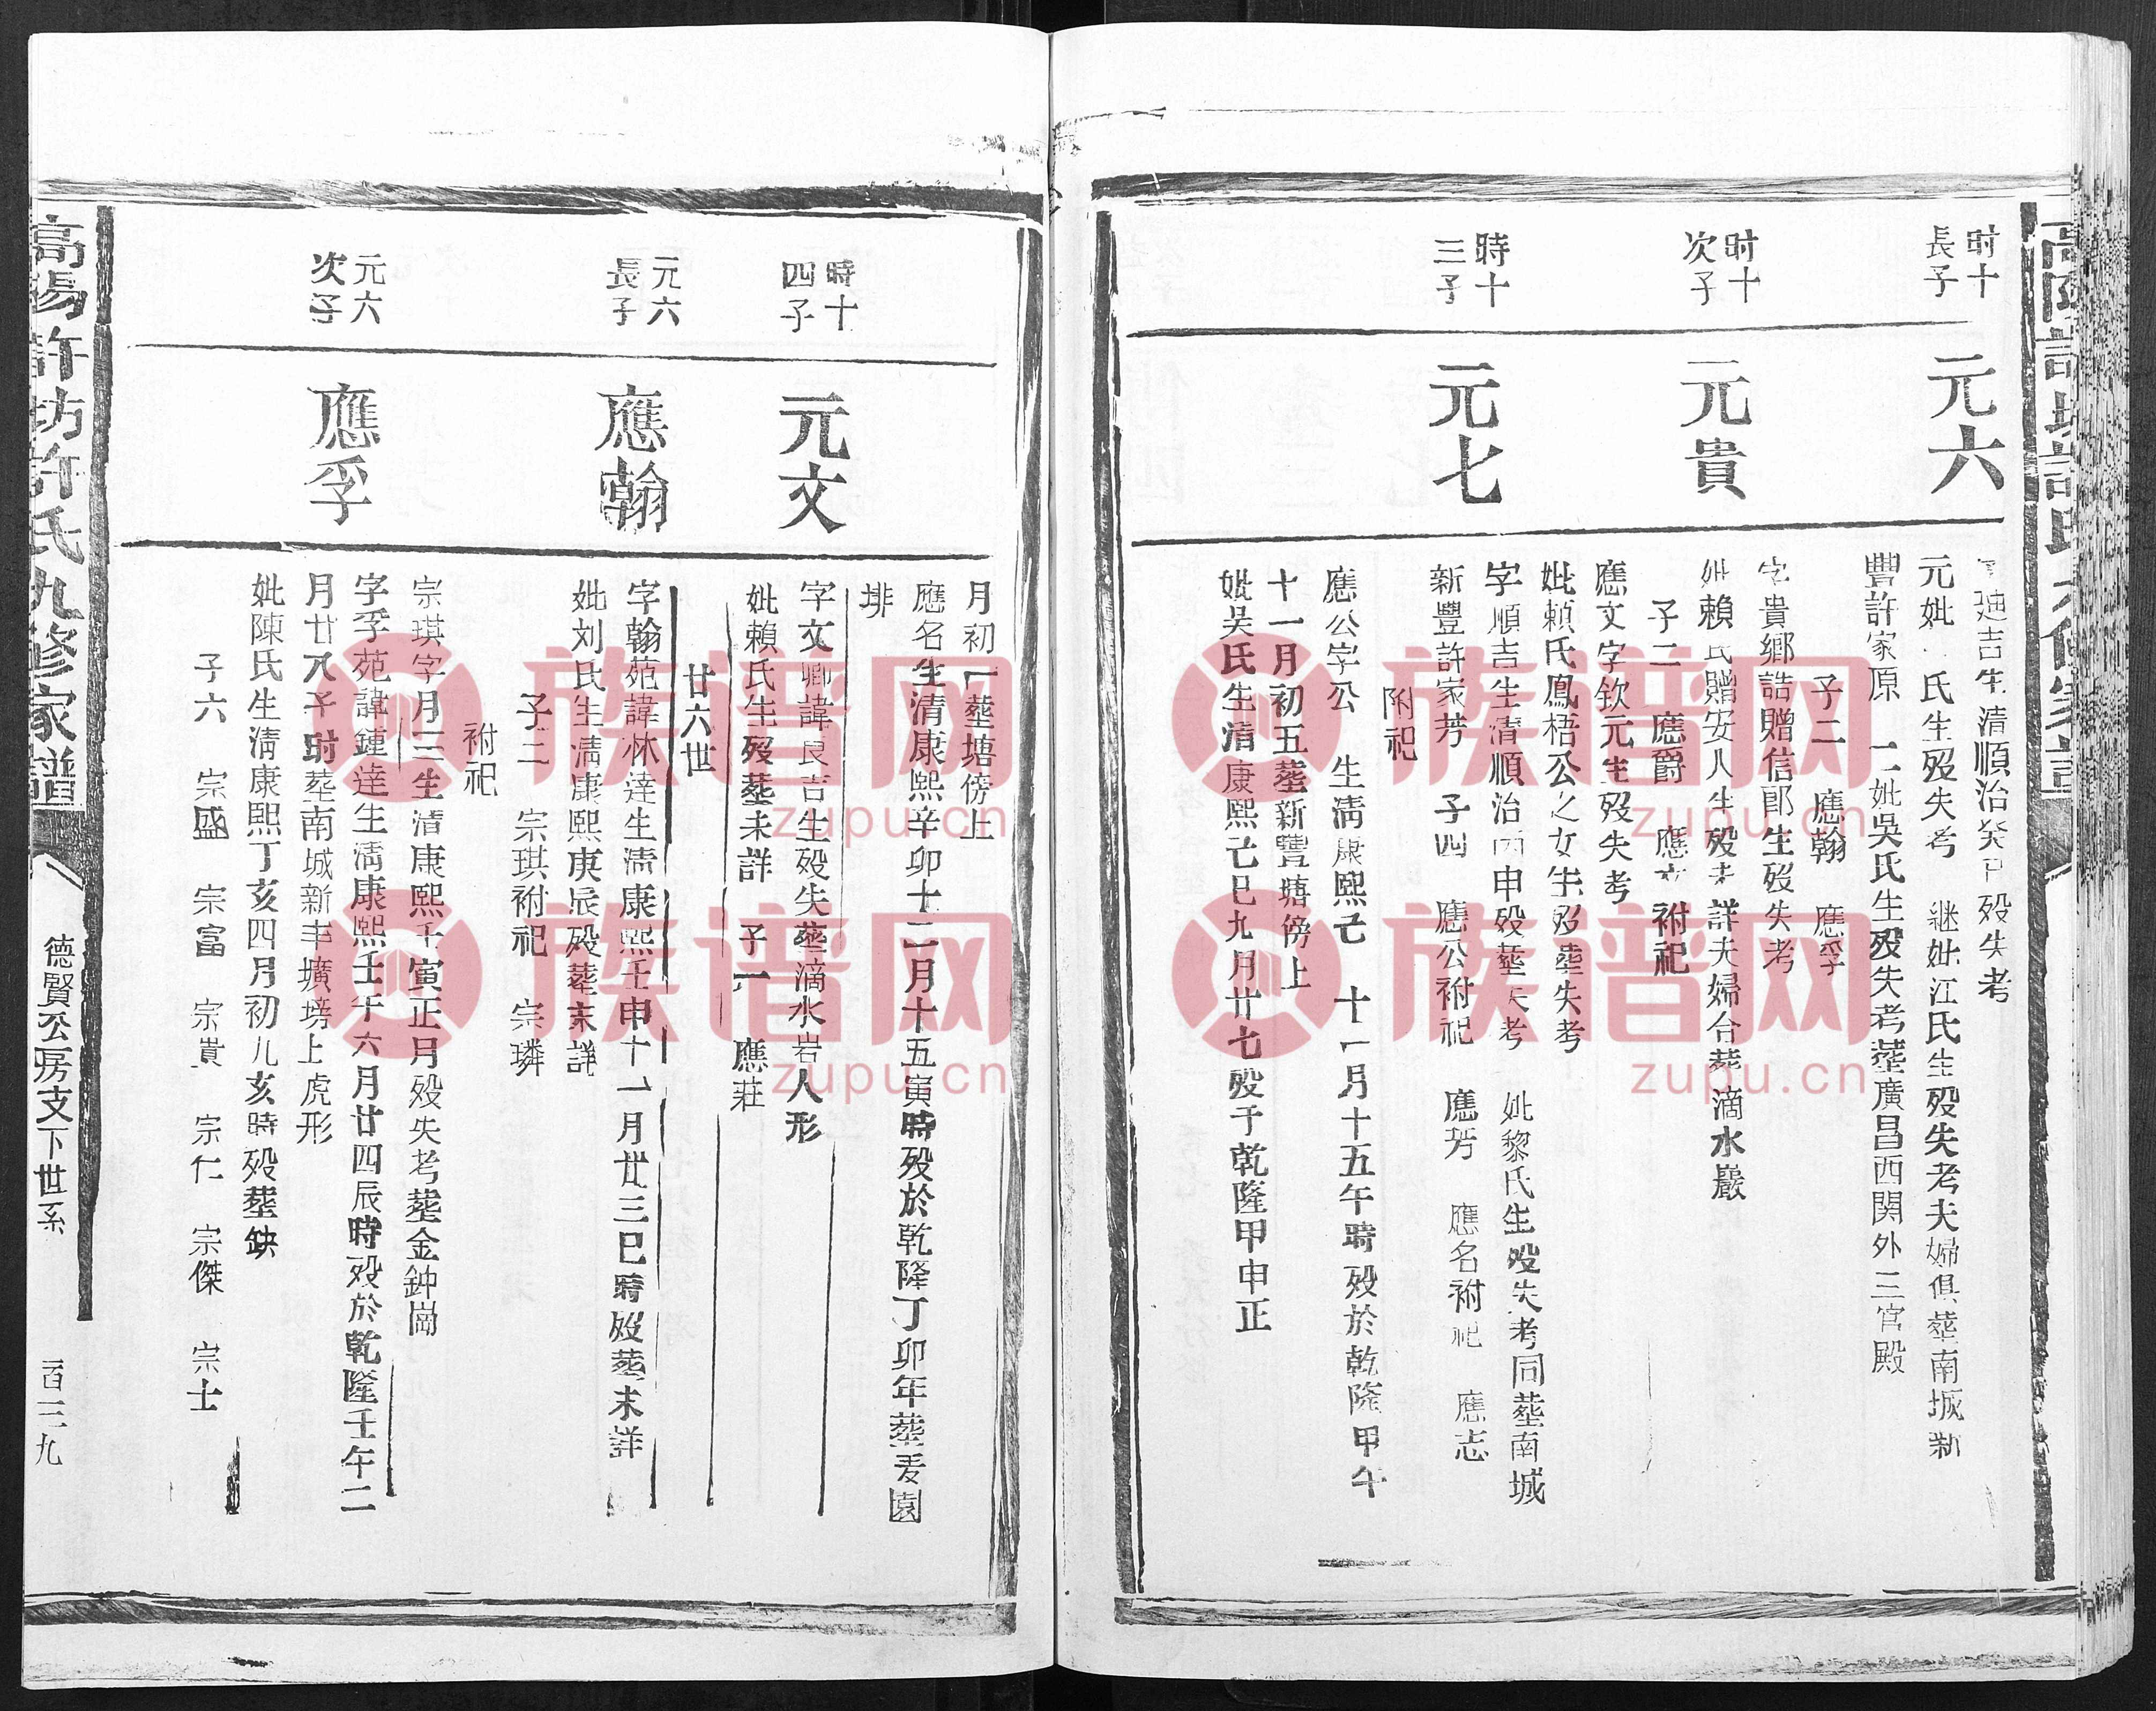 時十
長子
元六
廸吉生清順治癸巳殁失考
元妣 氏生殁失考 継妣江氏生殁失考夫婦俱塟南城新
豐許家原 二妣吳氏生殁失考塟廣昌西関外三官殿
子二 應翰 應孚
时十
次子
元貴
字貴鄉誥贈信郎生殁失考
妣賴氏贈安人生殁未詳夫婦合塟滴水巖
子二 應爵 應文祔祀
應文字欽元生殁失考
妣賴氏鳳梧公之女生殁塟失考
時十
三子
元七
字順吉生清順治丙申殁塟失考 妣黎氏生殁失考同塟南城
新豐許家芳 子四 應公祔祀 應芳 應名祔祀 應志
附祀
應公字公 生清康熙己 十一月十五午時殁於乾隆甲午
十一月初五塟新豐塘傍上
妣吴氏生清康熙己巳九月廿七殁于乾隆甲申正
月初一塟塘傍上
應名生清康熙辛卯十二月十五寅時殁於乾隆丁卯年塟麦園
排
時十
四子
元文
字文卿諱良吉生殁失塟滴水岩人形
妣賴氏生殁塟未詳 子一 應莊
廿六世
元六
長子
應翰
字翰苑諱林達生清康熙壬申十一月廿三巳時殁塟未詳
妣刘氏生清康熙庚辰殁塟未詳
子二 宗琪祔祀 宗璘
祔祀
宗琪字月三生清康熙壬寅正月殁失考塟金鈡崗
元六
次子
應孚
字孚苑諱鍾達生清康熙壬午六月廿四辰時殁於乾隆壬午二
月廿八子时塟南城新丰壙塝上虎形
妣陳氏生清康熙丁亥四月初九亥時殁塟缺
子六 宗盛 宗富 宗貴 宗仁 宗傑 宗士
高陽許坊許氏九修家譜
德賢公房支下世系
一百三九
族谱网
zupu.cn
族谱网
zupu.cn
族谱网
zupu.cn
族谱网
zupu.cn